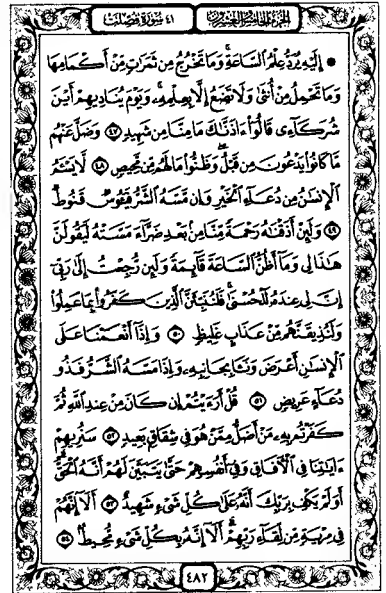 الجزء الخامس والعشرون ٤١ سورة فصلت
۞ إِلَيْهِ يُرَدُّ عِلْمُ السَّاعَةِ ۚ وَمَا تَخْرُجُ مِن ثَمَرَاتٍ مِّنْ أَكْمَامِهَا
وَمَا تَحْمِلُ مِنْ أُنثَىٰ وَلَا تَضَعُ إِلَّا بِعِلْمِهِ ۚ وَيَوْمَ يُنَادِيهِمْ أَيْنَ
شُرَكَاءِى قَالُوا ءَاذَنَّاكَ مَا مِنَّا مِن شَهِيدٍ ٤٧ وَضَلَّ عَنْهُم
مَّا كَانُوا يَدْعُونَ مِن قَبْلُ ۖ وَظَنُّوا مَا لَهُم مِّن مَّحِيصٍ ٤٨ لَّا يَسْئَمُ
الْإِنسَٰنُ مِن دُعَاءِ الْخَيْرِ وَإِن مَّسَّهُ الشَّرُّ فَيَئُوسٌ قَنُوطٌ
٤٩ وَلَئِنْ أَذَقْنَٰهُ رَحْمَةً مِّنَّا مِن بَعْدِ ضَرَّاءَ مَسَّتْهُ لَيَقُولَنَّ
هَٰذَا لِى وَمَا أَظُنُّ السَّاعَةَ قَائِمَةً وَلَئِن رُّجِعْتُ إِلَىٰ رَبِّى
إِنَّ لِى عِندَهُ لَلْحُسْنَىٰ ۚ فَلَنُنَبِّئَنَّ الَّذِينَ كَفَرُوا بِمَا عَمِلُوا
وَلَنُذِيقَنَّهُم مِّنْ عَذَابٍ غَلِيظٍ ٥٠ وَإِذَا أَنْعَمْنَا عَلَى
الْإِنسَٰنِ أَعْرَضَ وَنَئَا بِجَانِبِهِ وَإِذَا مَسَّهُ الشَّرُّ فَذُو
دُعَاءٍ عَرِيضٍ ٥١ قُلْ أَرَءَيْتُمْ إِن كَانَ مِنْ عِندِ اللَّهِ ثُمَّ
كَفَرْتُم بِهِ مَنْ أَضَلُّ مِمَّنْ هُوَ فِى شِقَاقٍ بَعِيدٍ ٥٢ سَنُرِيهِمْ
ءَايَٰتِنَا فِى الْءَافَاقِ وَفِى أَنفُسِهِمْ حَتَّىٰ يَتَبَيَّنَ لَهُمْ أَنَّهُ الْحَقُّ ۗ
أَوَلَمْ يَكْفِ بِرَبِّكَ أَنَّهُ عَلَىٰ كُلِّ شَىْءٍ شَهِيدٌ ٥٣ أَلَا إِنَّهُمْ
فِى مِرْيَةٍ مِّن لِّقَاءِ رَبِّهِمْ ۗ أَلَا إِنَّهُ بِكُلِّ شَىْءٍ مُّحِيطٌ ٥٤
٤٨٢